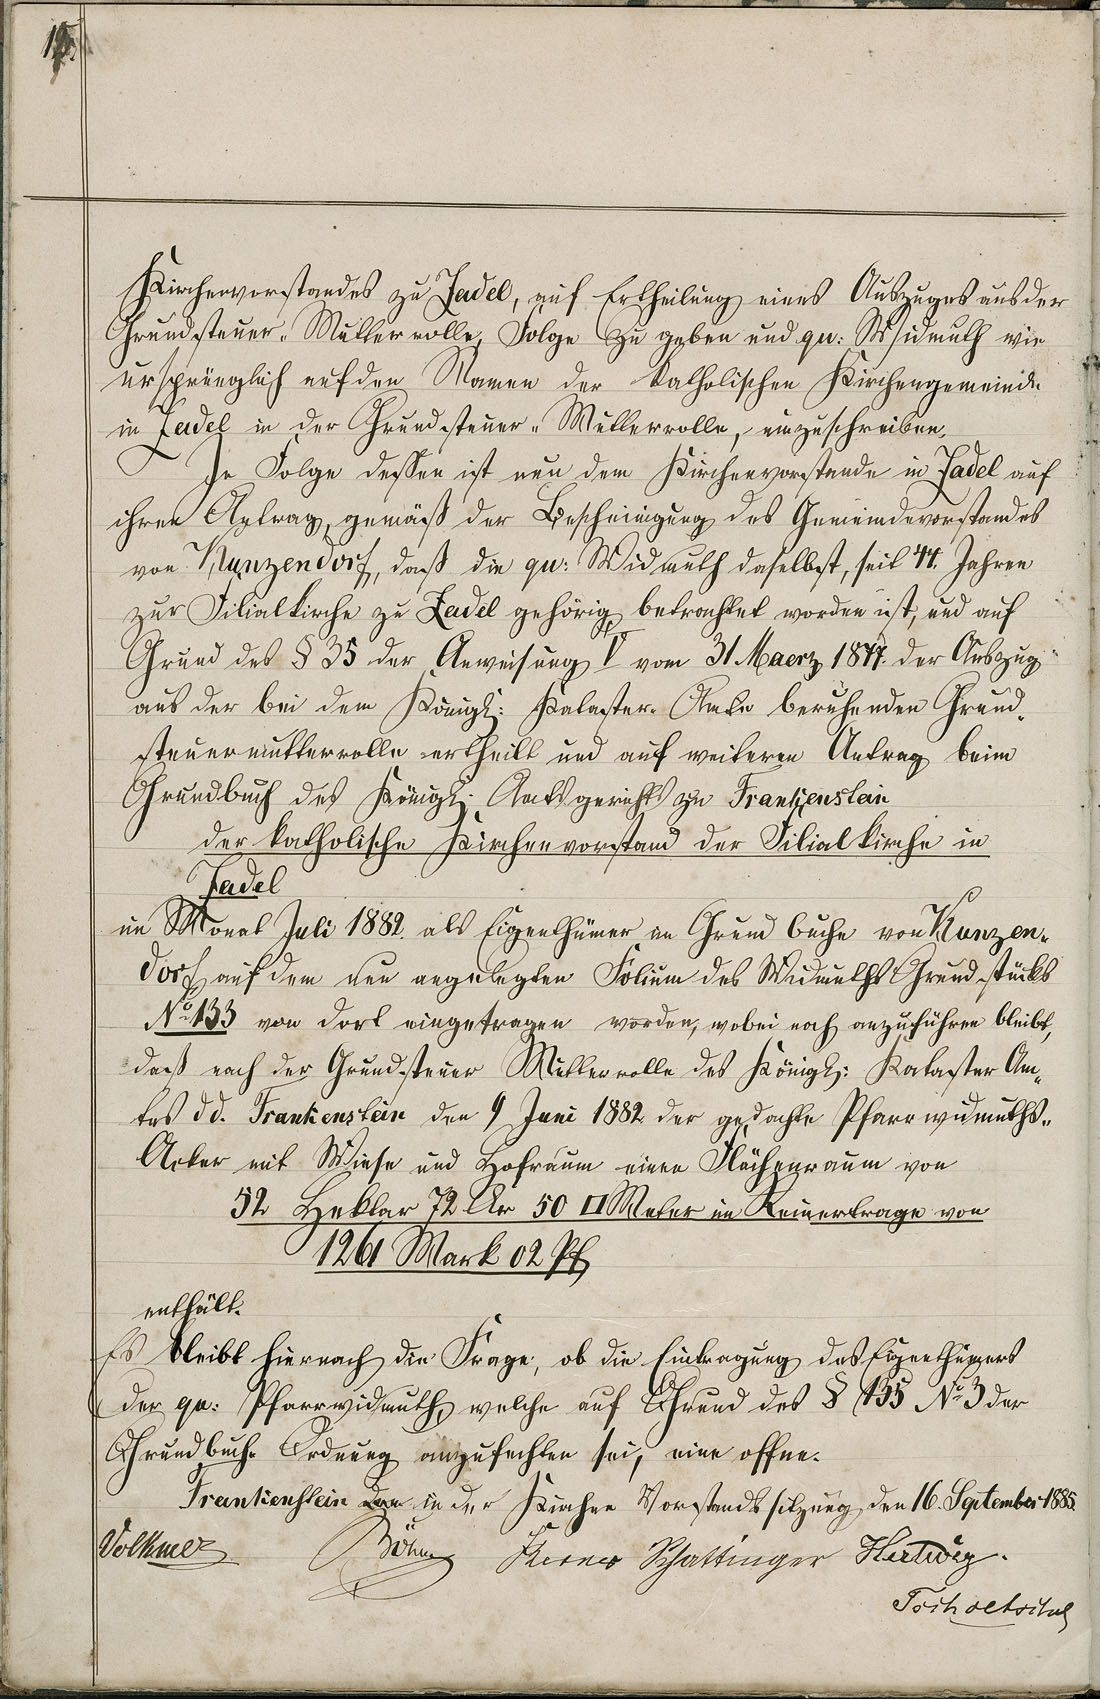 15.
Kirchenvorstandes zu Zadel, auf Ertheilung eines Auszuges aus der
Grundsteuer-Mutterrolle, Folge zu geben und qu: Widmuth wie
ursprünglich auf den Namen der katholischen Kirchengemeinde
in Zadel in der Grundsteuer-Mutterrolle, einzuschreiben.
In Folge dessen ist nun dem Kirchenvorstande in Zadel auf
ihren Antrag, gemäß der Bescheinigung des Gemeindevorstandes
von Kunzendorf, daß die qu: Widmuth daselbst, seit 44. Jahren
zur Filialkirche zu Zadel gehörig betrachtet worden ist, und auf
Grund des § 35 der Anweisung V vom 31 Maerz 1877. der Auszug
aus der bei dem Königl: Kataster-Amte beruhenden Grund-
steuermutterrolle ertheilt und auf weiteren Antrag beim
Grundbuch des Königl: Amtsgerichts zu Frankenstein
der katholische Kirchenvorstand der Filialkirche in
Zadel
im Monat Juli 1882. als Eigenthümer im Grundbuche von Kunzen-
dorf auf dem neu angelegten Folium des Widmuths Grundstücks
No 133 von dort eingetragen worden, wobei noch anzuführen bleibt,
daß nach der Grundsteuer Mutterrolle des Königl: Kataster Am-
tes dd. Frankenstein den 9 Juni 1882 der gedachte Pfarrwidmuths-
Acker mit Wiese und Hofraum einen Flächenraum von
52 Hektar 72 Ar 50 □ Meter im Reinertrage von
1261 Mark 02 Pf
enthält.
Es bleibt hiernach die Frage, ob die Eintragung des Eigenthümers
der qu: Pfarrwidmuth, welche auf Grund des § 135 No 3 der
Grundbuch-Ordnung anzufechten sei, eine offne.
Frankenstein in der Kirchen Vorstandssitzung den 16. September 1885.
Volkmer Böhm Schattinger Hertwig.